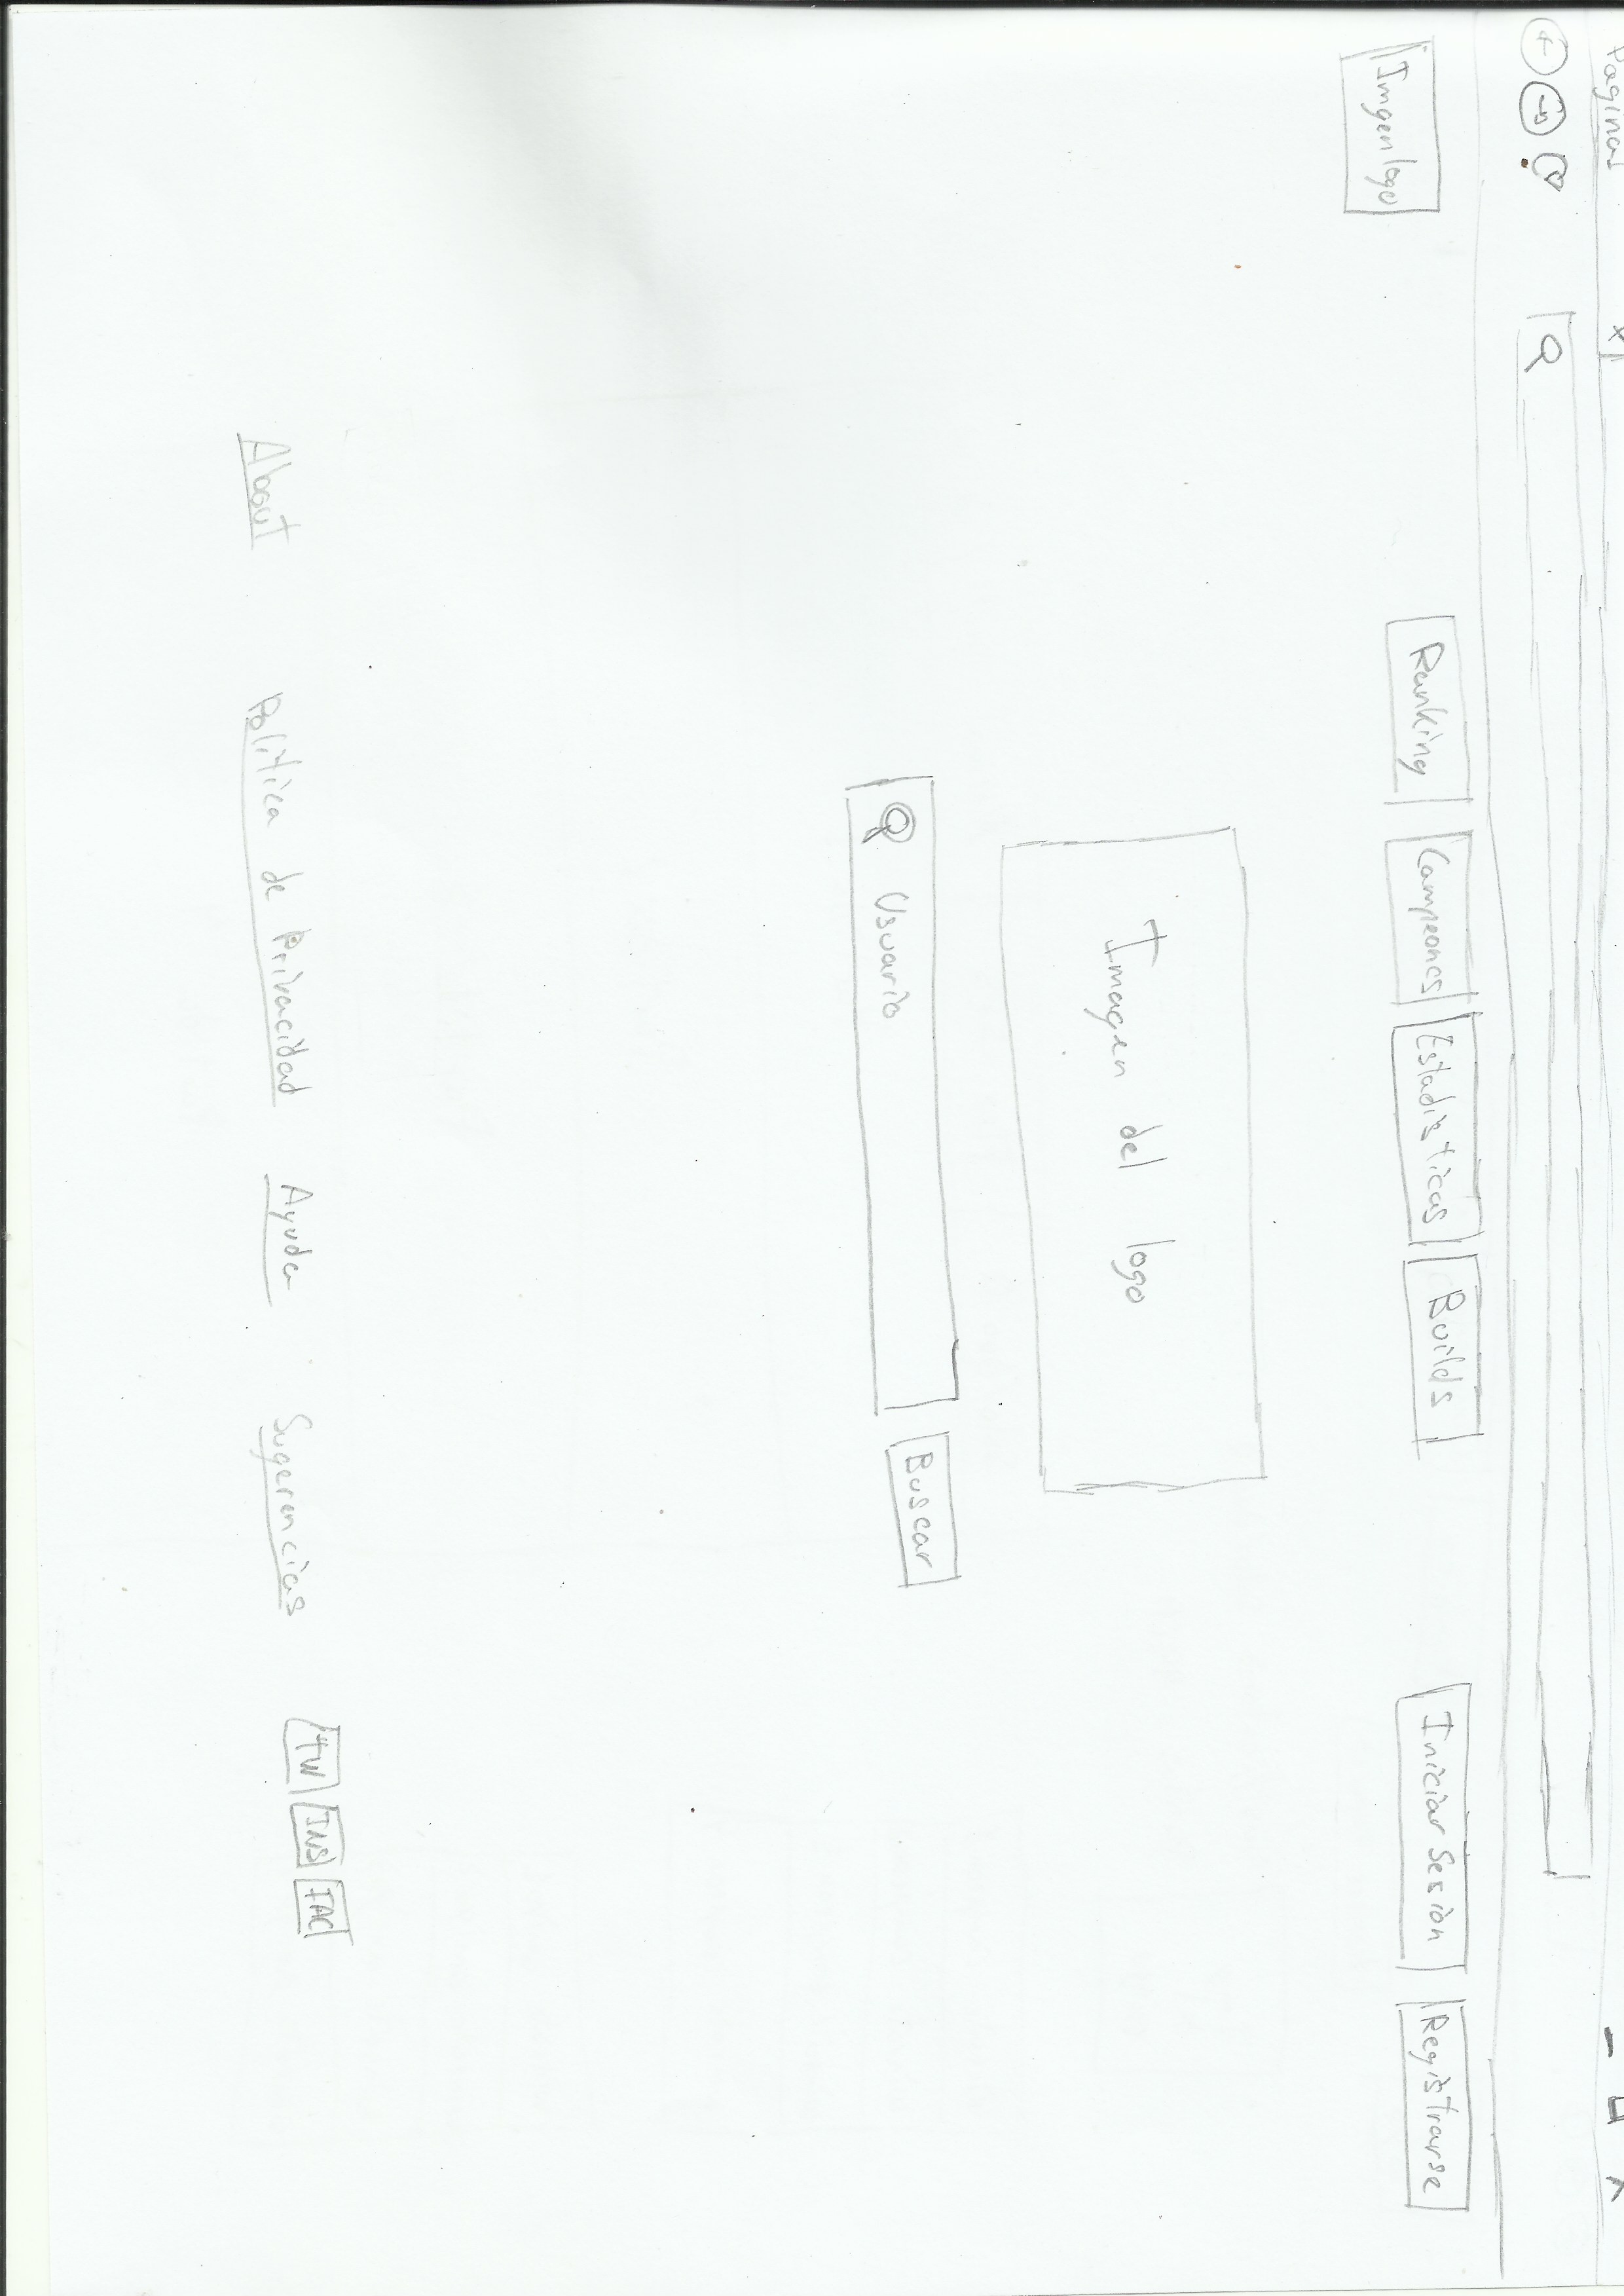 Paginas x
Imgen logo Ranking Campeones Estadisticas Builds Iniciar Sesion Registrarse
Imagen del logo
Usuario Buscar
About Politica de Privacidad Ayuda Sugerencias TW INS FAC